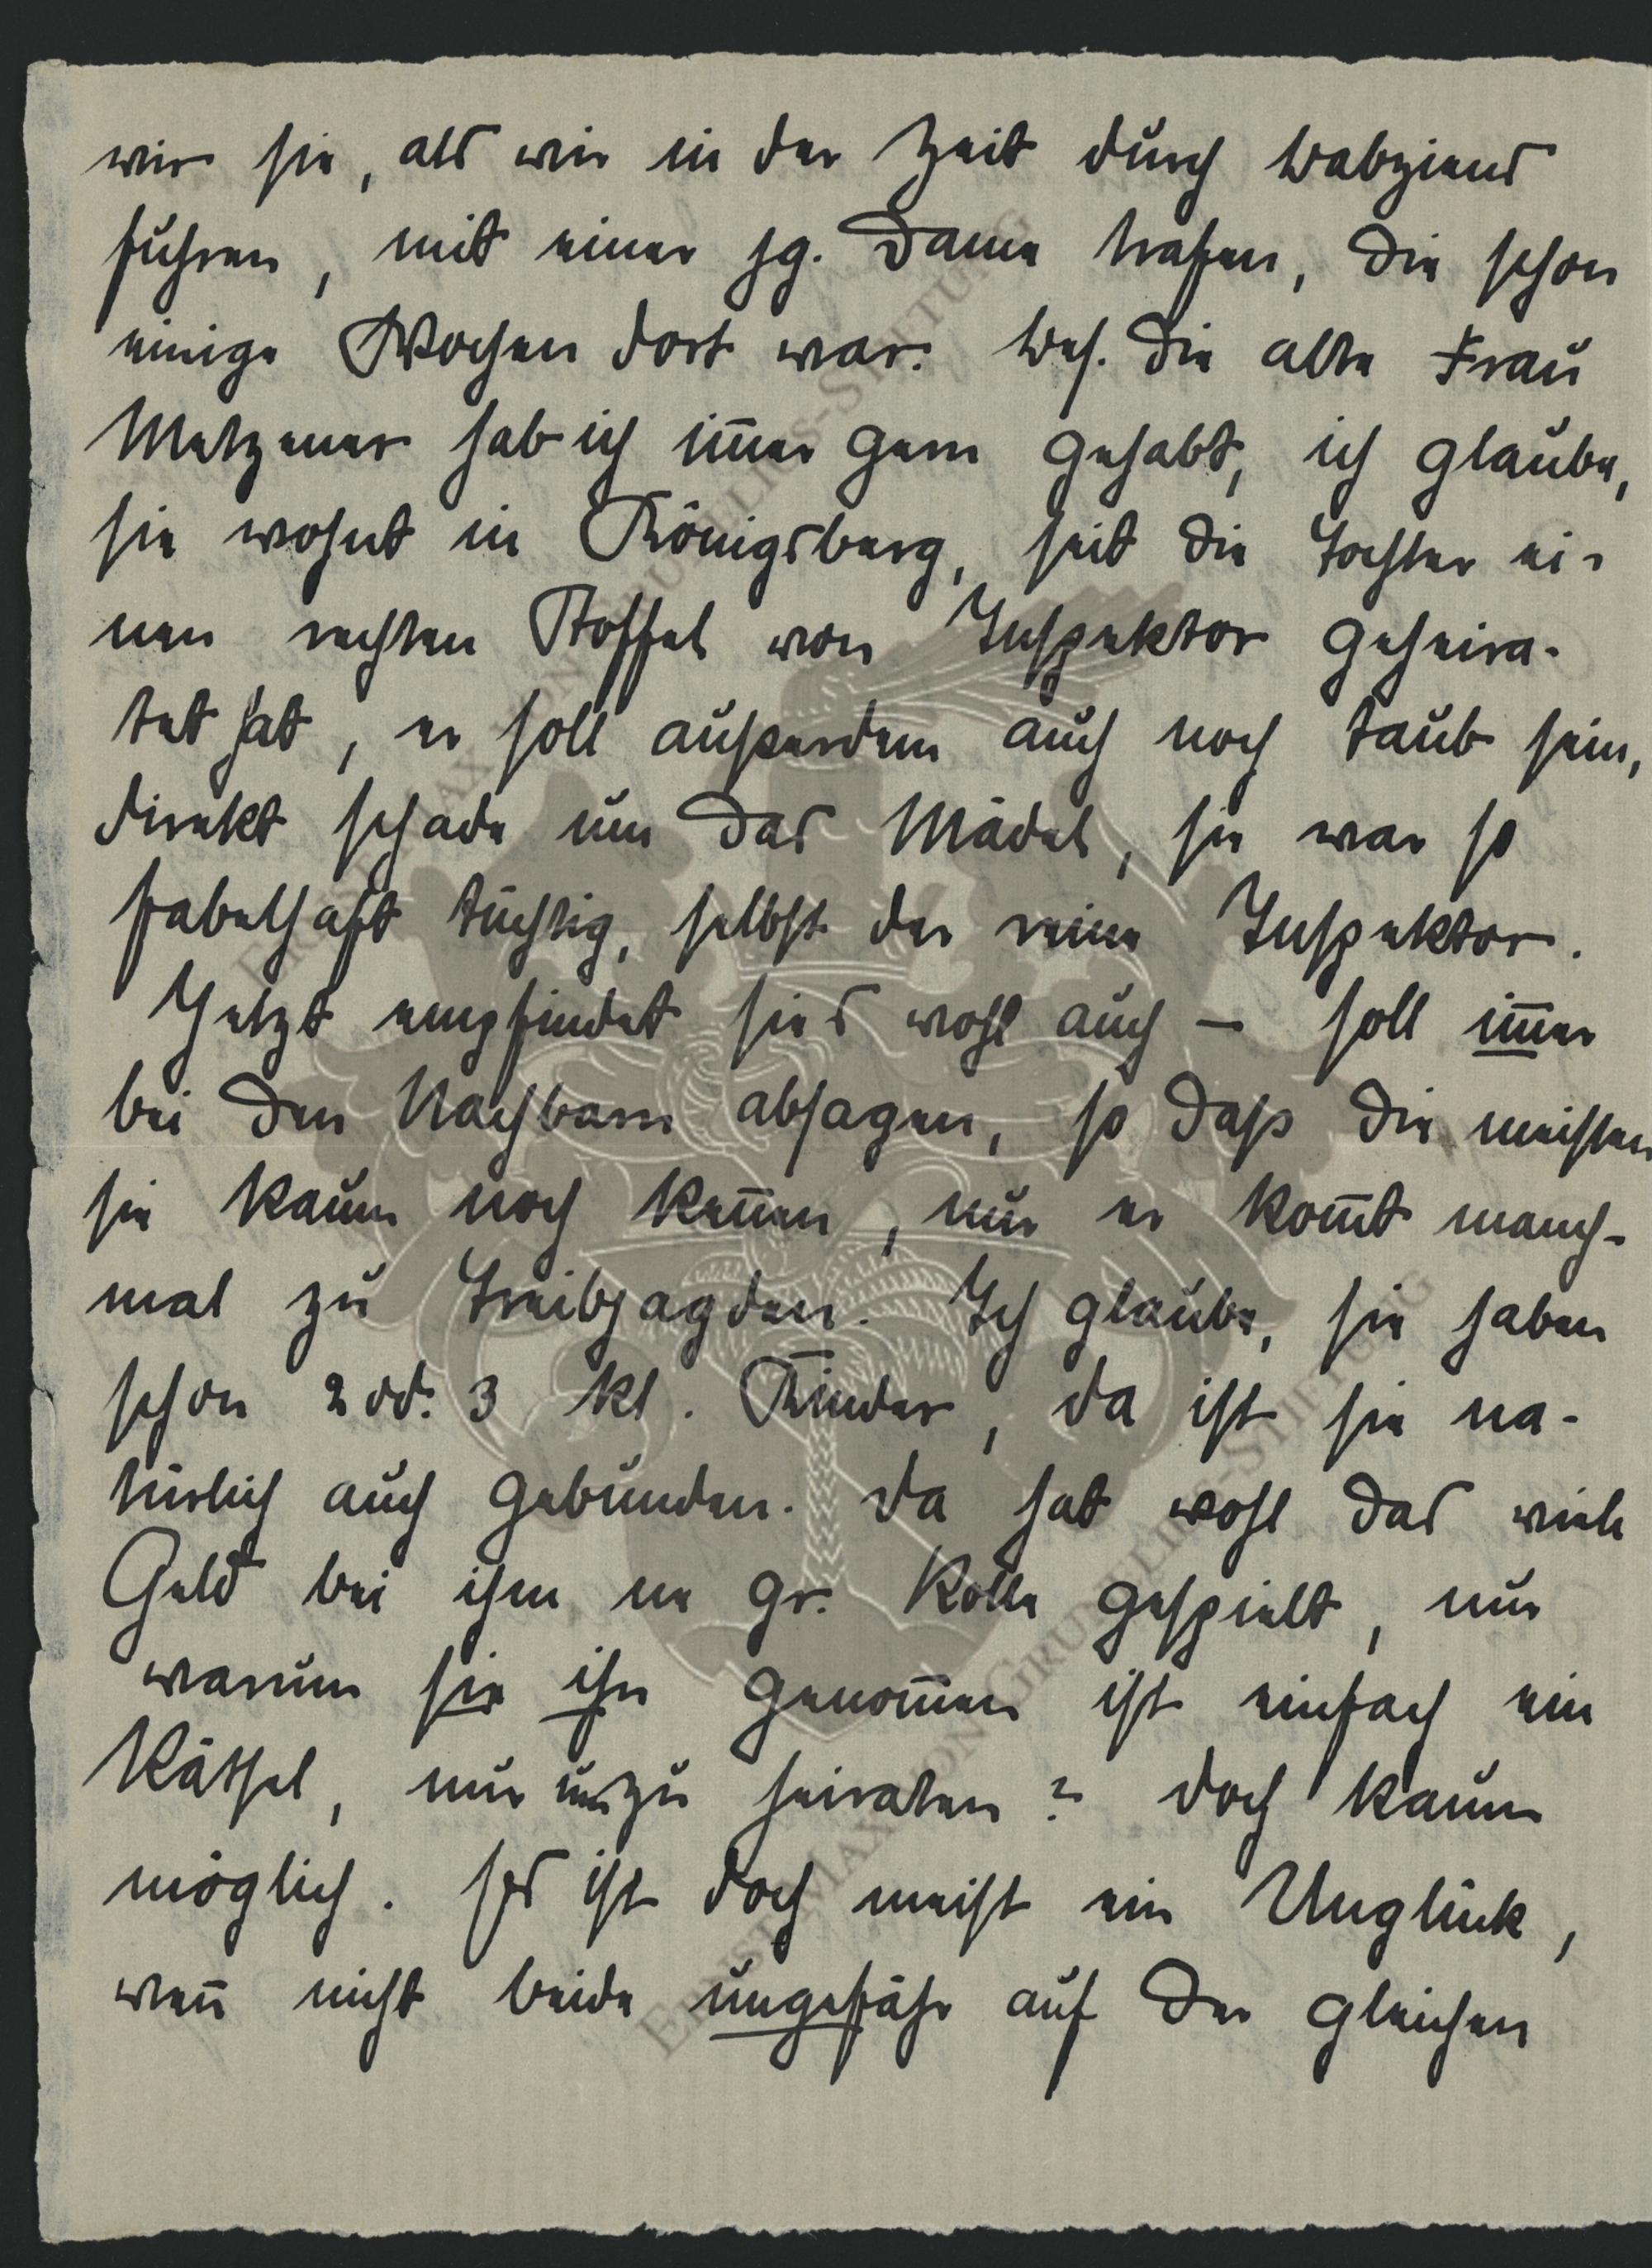 wir sie, als wir in der Zeit durch Wabziens
fuhren, mit einer jg. Dame trafen, die schon
einige Wochen dort war. Bes. die alte Frau
Metzener hab ich im̅er gern gehabt, ich glaube,
sie wohnt in Königsberg, seit die Tochter ei-
nen rechten Stoffel von Inspektor geheira-
tet hat, er soll ausserdem auch noch taub sein,
direkt schade um das Mädel, sie war so
fabelhaft tüchtig, selbst der reine Inspektor.
Jetzt empfindet sies wohl auch – soll im̅er
bei den Nachbarn absagen, so dass die meisten
sie kaum noch ken̅en, nur er kom̅t manch-
mal zu Treibjagden. Ich glaube, sie haben
schon 2 od. 3 kl. Kinder, da ist sie na-
türlich auch gebunden. Da hat wohl das viele
Geld bei ihm ne gr. Rolle gespielt, nur
warum sie ihn genom̅en ist einfach ein
Rätsel, nur um zu heiraten? doch kaum
möglich. Es ist doch meist ein Unglück,
wen̅ nicht beide ungefähr auf der gleichen
ERNST-MAX VON GRUNELIUS-STIFTUNG
ERNST-MAX VON GRUNELIUS-STIFTUNG